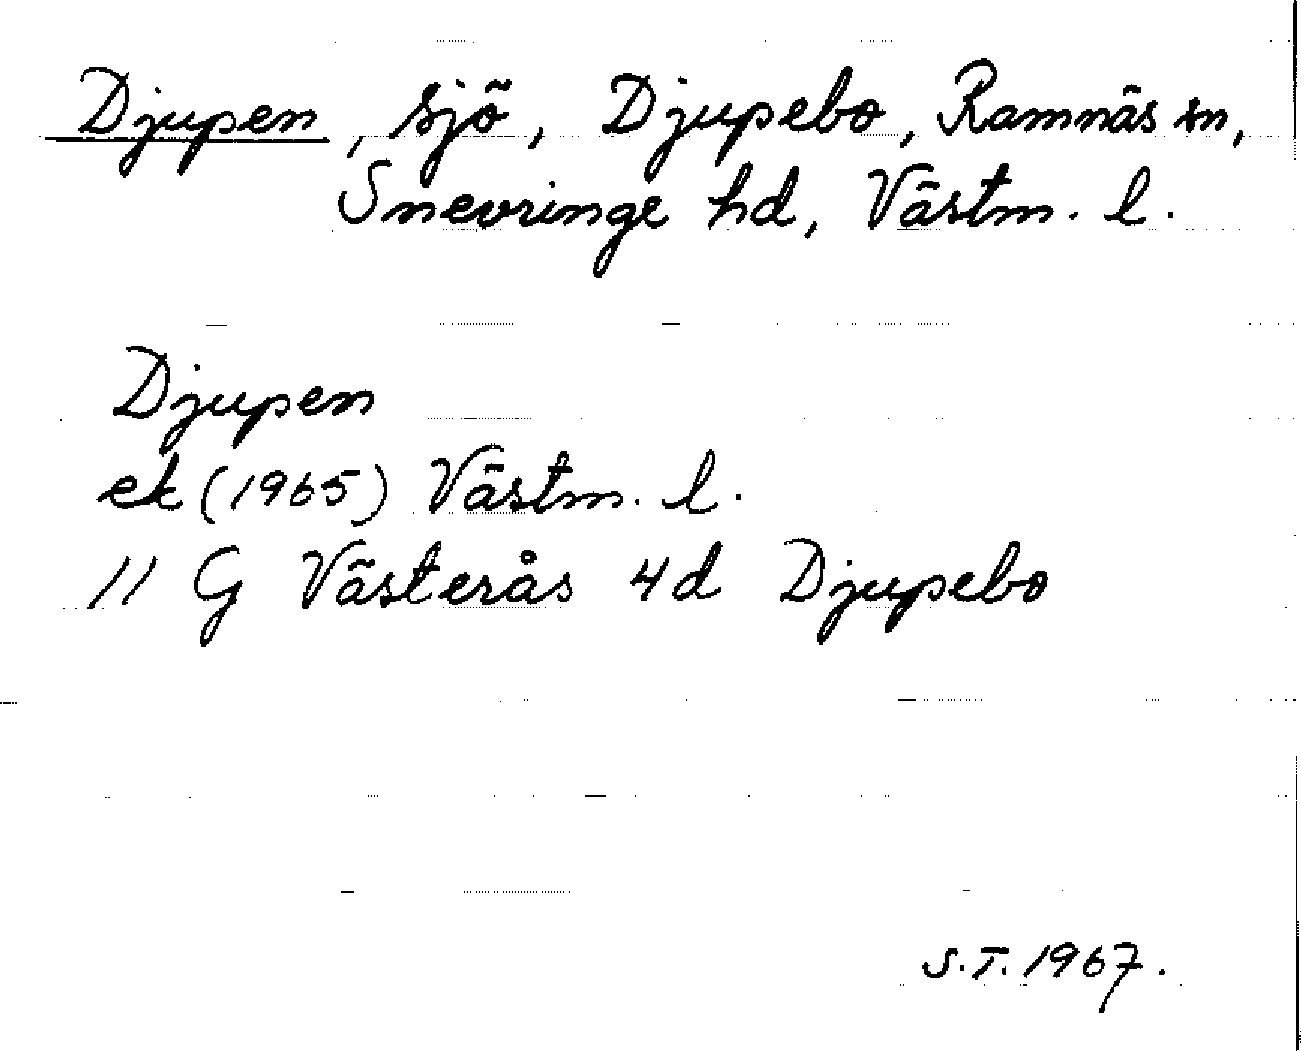 Djupen, sjö, Djupebo, Ramnäs sn,
Snevringe hd, Västm. l.
Djupen
ek (1965) Västm. l.
11 G Västerås 4d Djupebo
S.T. 1967.